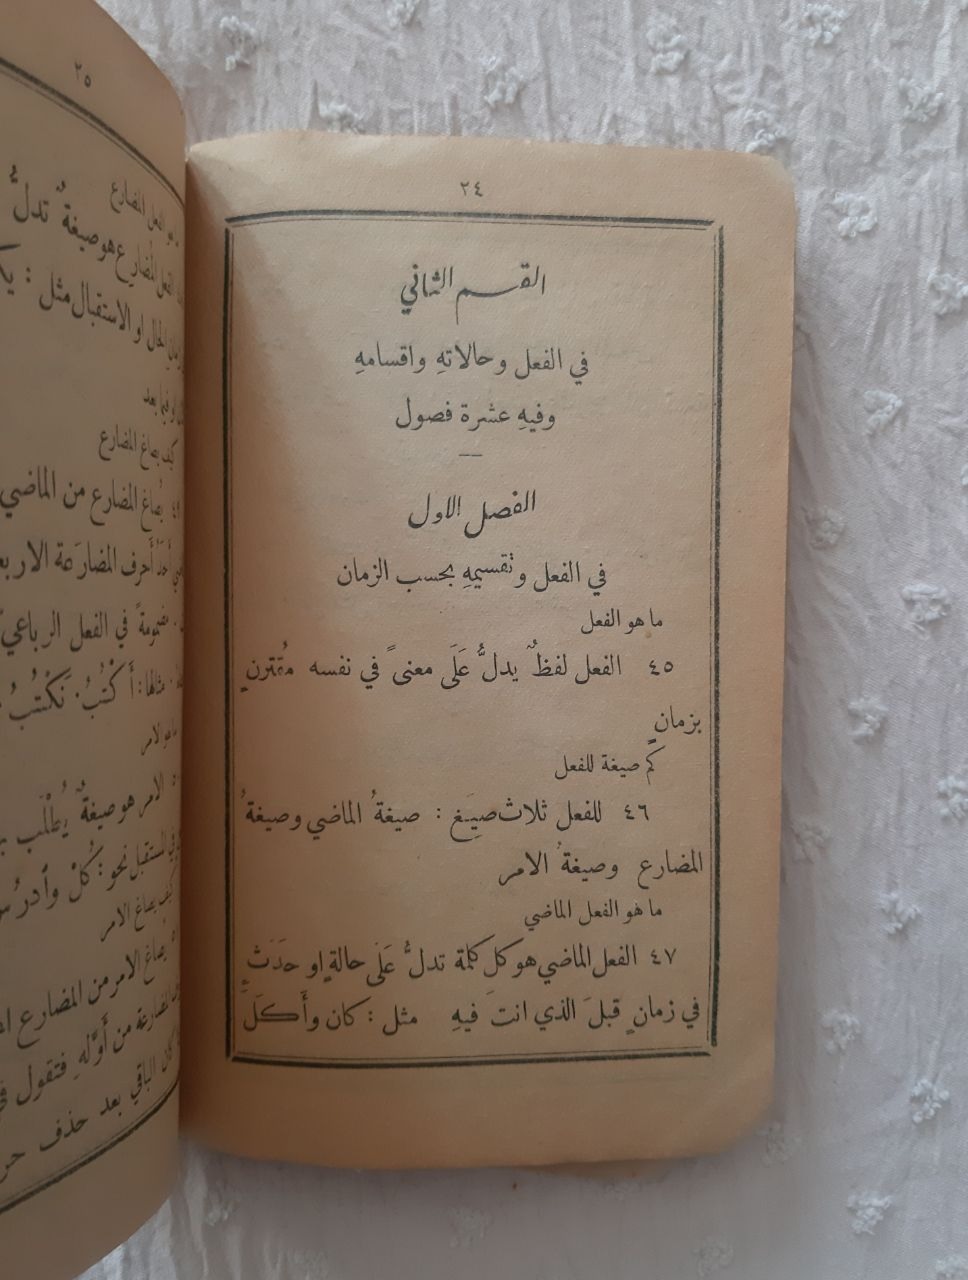 ٢٤
القسم الثاني
في الفعل وحالاتهِ واقسامهِ
وفيهِ عشرة فصول
الفصل الاول
في الفعل وتقسيمهِ بحسب الزمان
ما هو الفعل
٤٥ الفعل لفظٌ يدلُّ عَلَى معنىً في نفسه مُقترنٍ
بزمانٍ
كم صيغة للفعل
٤٦ للفعل ثلاث صِيَغ : صيغةُ الماضي وصيغةُ
المضارع وصيغةُ الامر
ما هو الفعل الماضي
٤٧ الفعل الماضي هو كل كلمة تدلُّ عَلَى حالةٍ او حَدَثٍ
في زمانٍ قبلَ الذي انتَ فيهِ مثل : كان وأَكَلَ
٢٥
هو الفعل المضارع
الفعل المُضارع هو صيغةٌ تدلُّ
الحال او الاستقبال مثل :
او فيما بعد
كيف يصاغ المضارع
٤٩ يُصاغ المضارع من الماضي
أَحَدُ أَحرف المضارَعة
مضمومةً في الفعل الرباعي
مثالها : أَكْتُبُ . نَكْتُبُ
ما هو الامر
الامر هو صيغةٌ يُطْلَب
في المستقبل نحو : كُلْ وأدرُس
كيف يصاغ الامر
يُصاغ الامر من المضارع
المضارعة من أَوَّلهِ فتقول
كان الباقي بعد حذف